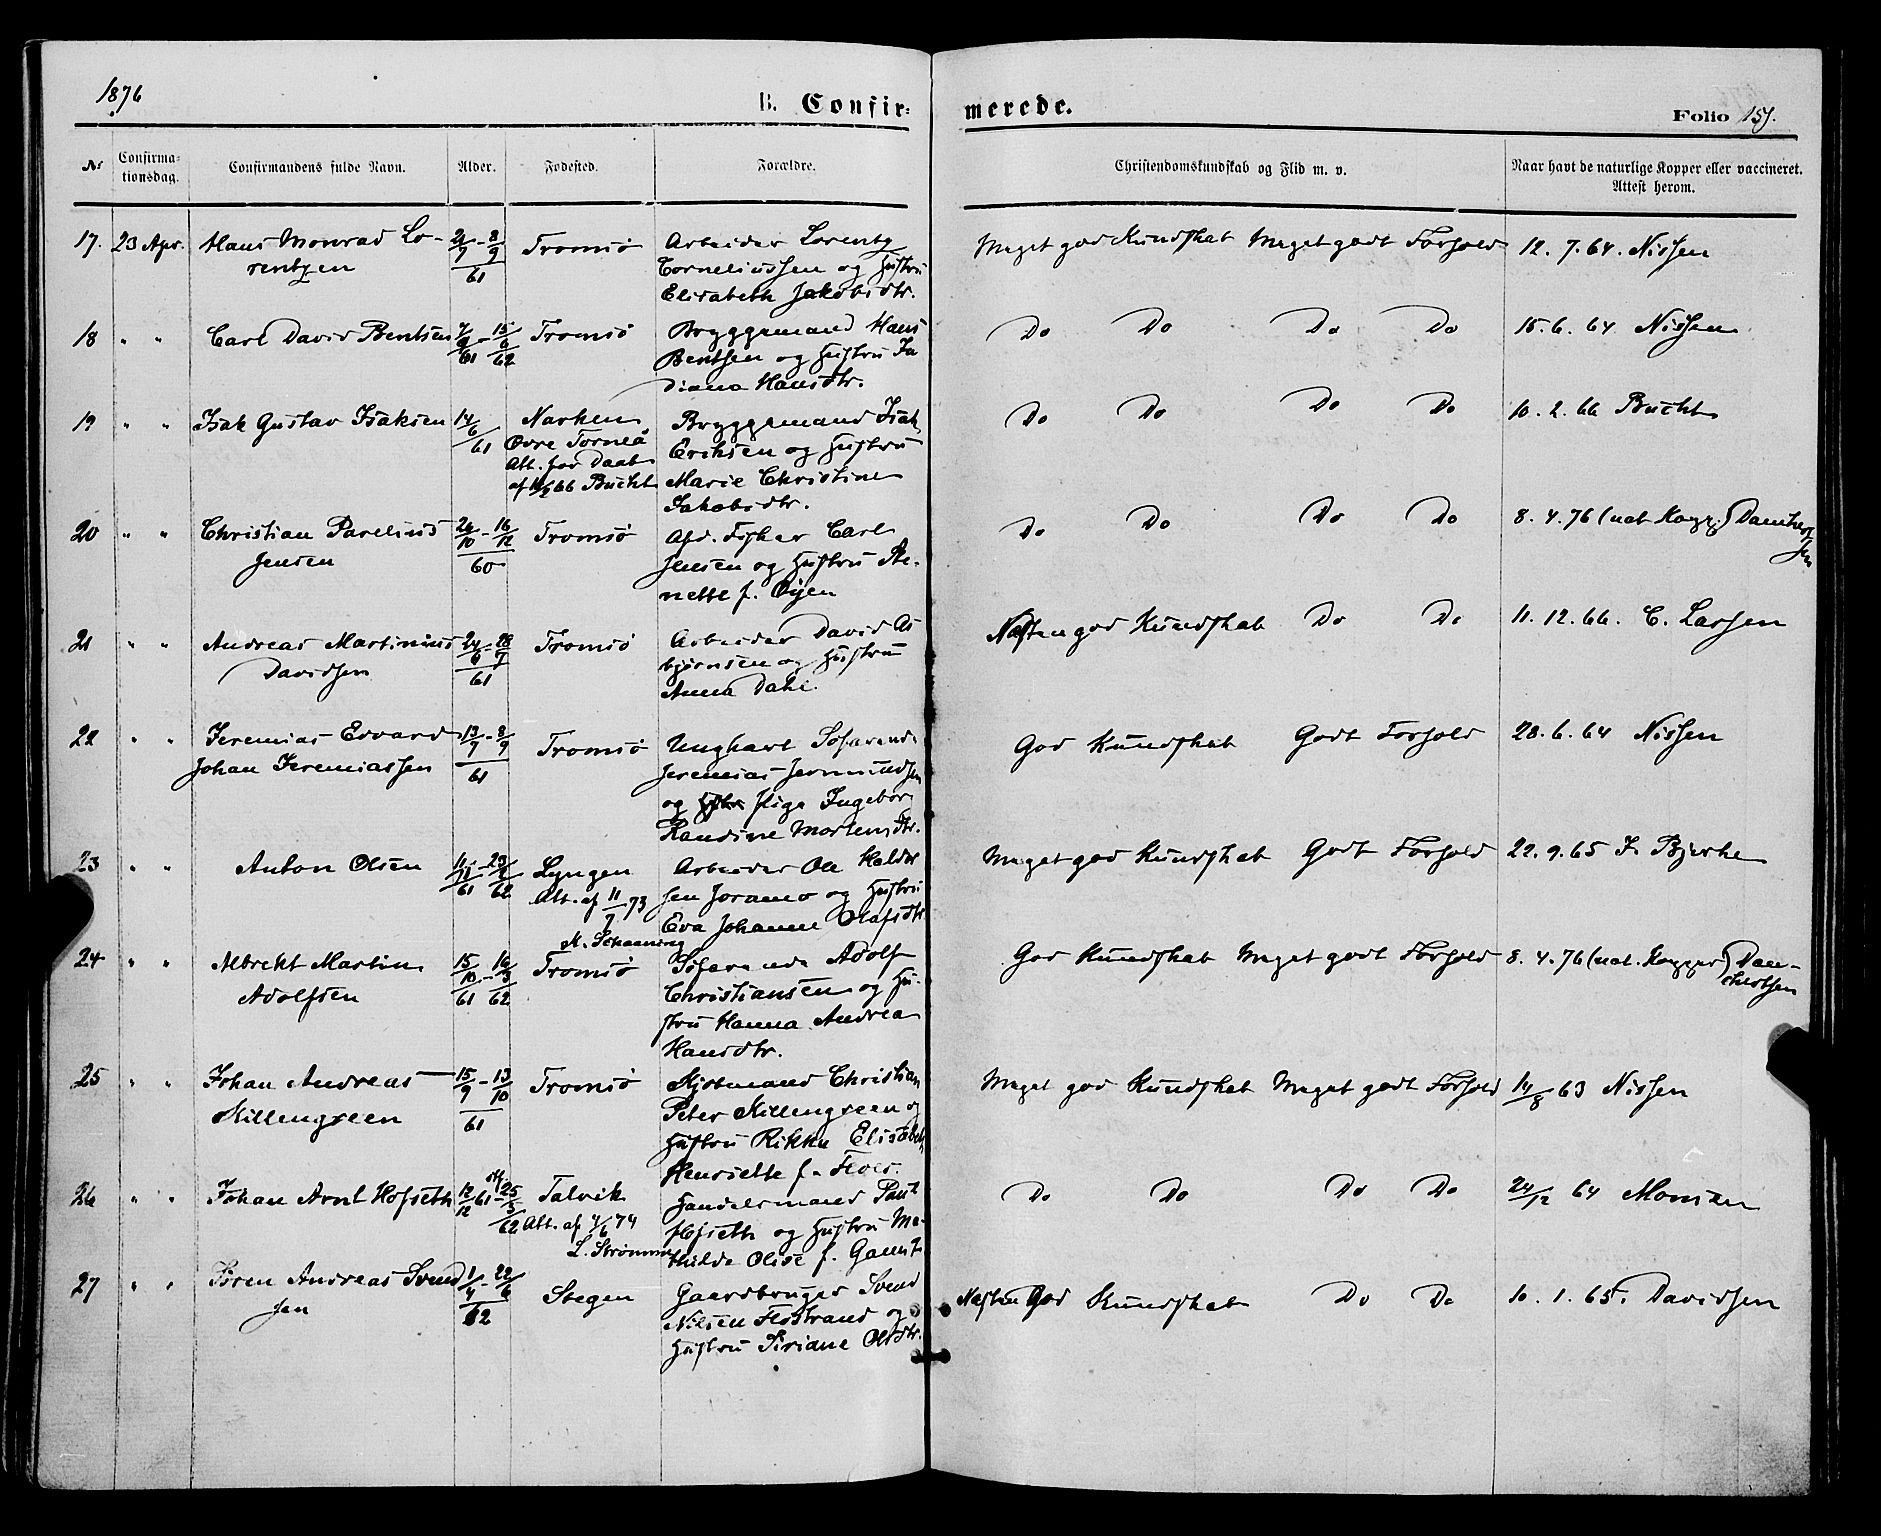 1876
B. Confir-
merede.
Folio 157.
Nr
Confirma-
tionsdag.
Confirmandens fulde Navn.
Alder.
Fødested.
Forældre.
Christendomskundskab og Flid m. v.
Naar havt de naturlige Kopper eller vaccineret.
Attest herom.
17. 23 Apr. Hans Monrad Lo- 8/9 Tromsø Arbeider Lorentz Meget god Kundskab Meget godt Forhold 12. 7. 64. Nissen
rentzen 61 Corneliussen og Hustru
Elisabeth Jakobsdtr.
18 " " Carl David Bentsen 61 15/6 62 Tromsø Bryggemand Hans Do Do Do Do 15. 6. 64 Nissen
Bentsen og Hustru In
diana Hansdtr.
19 " " Isak Gustav Isaksen 14/6 61 Narken Bryggemand Isak Do Do Do Do 10. 2. 66 Bucht
Øvre Torneå Eriksen og Hustru
Att. for Daab Marie Christine
af 10/2 66 Bucht Jakobsdtr.
20 " " Christian Parelius 26/10 - 16/12 Tromsø Afd. Fisker Carl Do Do Do Do 8. 4. 76 (nat. Kopp.)
Jensen 60 Jensen og Hustru
nette f. Øijen
21 " " Andreas Martinius 24/6 - 28/7 Tromsø Arbeider David As Næsten god Kundskab Do Do 11. 12. 66. C. Larsen
Davidsen 61 bjørnsen og Hustru
Anna Dahl.
22 " " Jeremias Edvard 13/7 - 8/9 Tromsø Ungkarl Søfarende God Kundskab Godt Forhold 28. 6. 64 Nissen
Johan Jeremiassen 61 Jeremias
og Pige Ingebor
Randine Mortensdtr.
23 " " Anton Olsen 11/11 61 - 23/2 62 Lyngen Arbeider Ole Meget god Kundskab Godt Forhold 22. 9. 65 J. Bjerke
Att. af 11/7 73 sen Joramo og Hustru
M. Schaaning Eva Johanne Olafsdtr
24 " " Albrekt Martin 15/10 61 - 16/3 62 Tromsø Søfarende Adolf God Kundskab Meget godt Forhold 8. 4. 76 (nat. Kopper) Dan-
Adolfsen Christiansen og Hu- chertsen
stru Hanna Andrea
Hansdtr.
25 " " Johan Andreas 15/9 - 13/10 Tromsø Kjøbmand Christian Meget god Kundskab Meget godt Forhold 14/8 63 Nissen
Killengreen 61 Peter Killengreen og
Hustru Rikke Elisabeth
Henriette f. Floer.
26 " " Johan Arnt Hofseth 12/12 61 - 25/5 62 Talvik Handelsmand Paul Do Do Do Do 24/12 64 Monsen
Att. af 4/6 74 Hofseth og Hustru Ma-
L. Strømme thilde Olise f. Gamst
27 " " Søren Andreas Svend 1/4 - 22/6 Stegen Gaardbruger Svend Næsten God Kundskab Do Do 10. 1. 65. Davidsen
sen 62 Nilsen Flostrand og
Hustru Siriane Olsdtr.